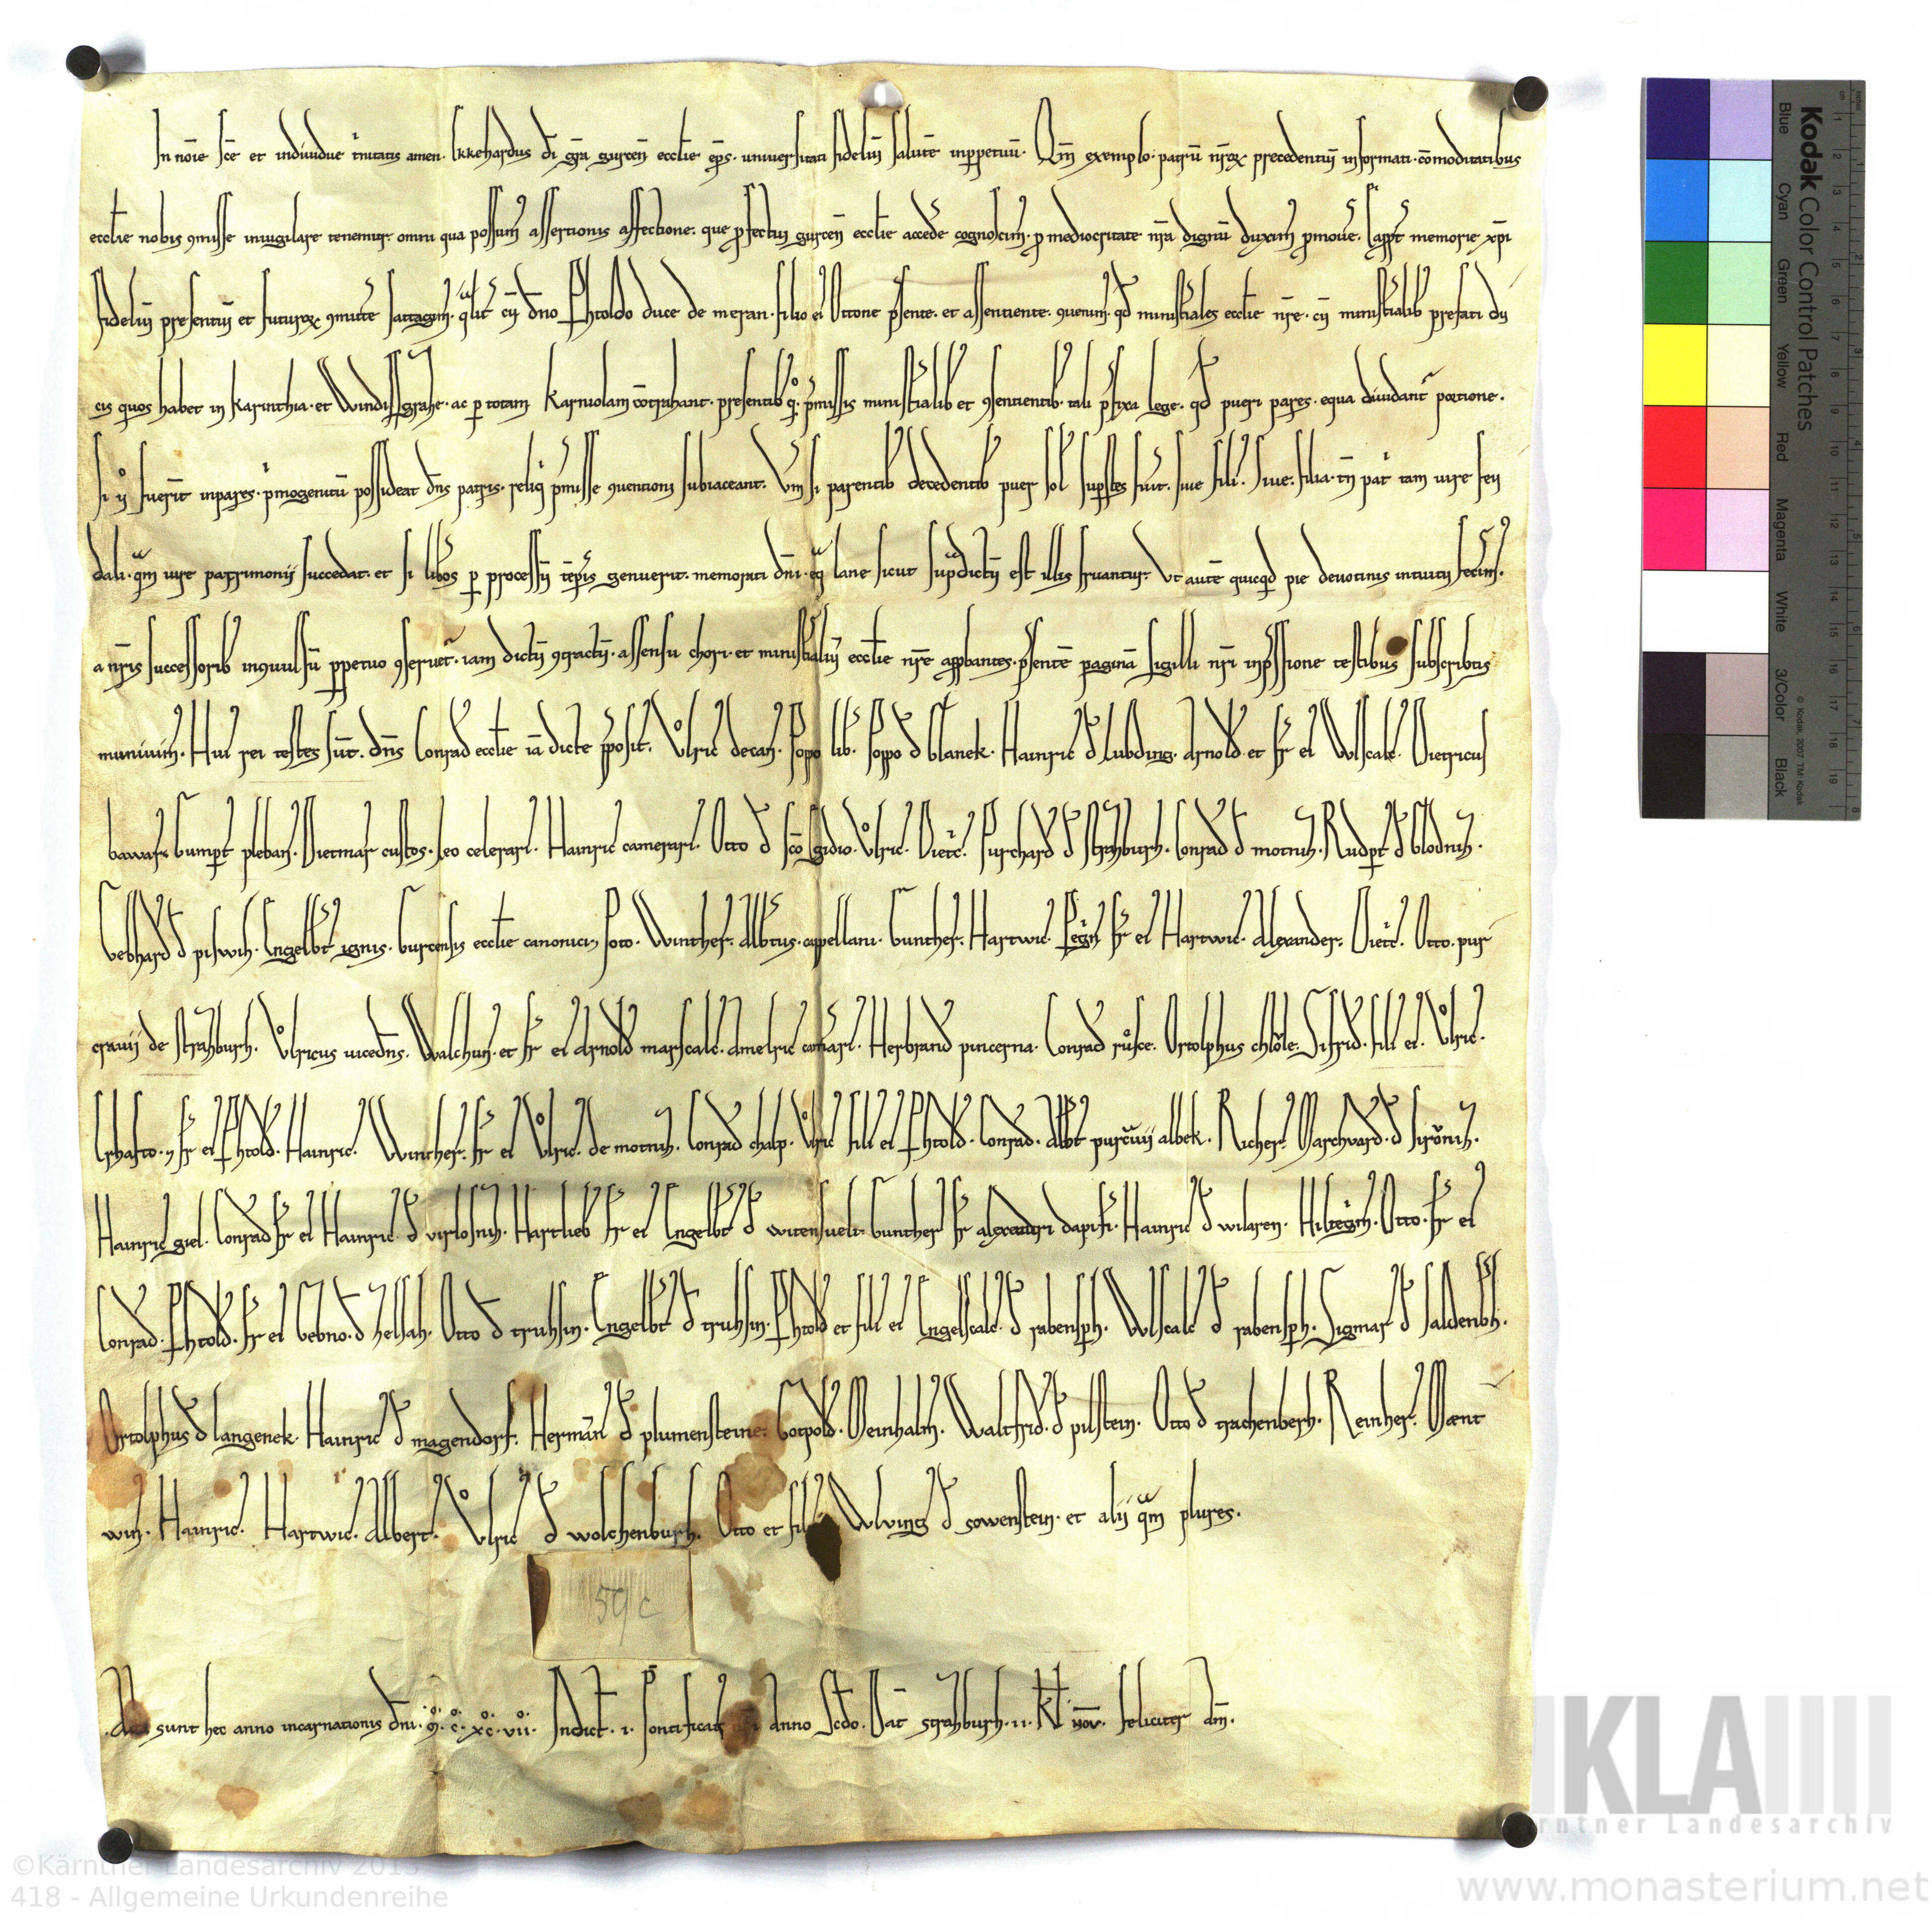 In noīe scē et indiuidue t'nitatis amen. Ekkehardus dī gr̄a gurcen̄ eccl'ie ep̄s. uniuersitati fideliū salutē inp̱petuū. Qm̄ exemplo patrū nr̄oꝝ precedentiū informati. cōmoditatibus
eccl'ie nobis ꝯmisse inuigilare tenemur omni qua possum᷒ assertionis affectione. que ꝓfectui gurcen̄ eccl'ie accedē cognoscim᷒. ꝓ mediocritate nr̄a dignū duxim᷒ ꝓmouē. memorie xp̄i
fideliū presentiū et futuroꝝ ꝯmittē satagim᷒. qualit' cū dn̄o P̱htoldo duce de meran. filio ei᷒ Ottone p̄sente. et assentiente. ꝯuenim᷒. qd̄ minist'iales eccl'ie nr̄e. cū minist'ialib᷒ prefati du
cis quos habet in Karinthia. et Windissgrahe. ac p̱ totam Karniolam cōtrahant. presentib᷒ p̄missis minist'ialib᷒ et ꝯsentientib᷒. tali p̄fixa lege. qd̄ pueri pares. equa diuidant᷑ portione.
Si u͛o fuerīt inpares. p'mogenitū possideat dn̄s patris. reliq' p̄misse ꝯuentioni subiaceant. Vm̄ si parentib᷒ decedentib᷒ puer sol᷒ sup̱stes fuit. siue fili᷒. siue filia. tam iure feu
dali. qm̄ iure patrimonii succedat. et si lib'os p̱ processū tēp̱is genuerit. memorati dn̄i. sicut sup̄dictū est illis fruantur. Vt autē quicqd̄ pie deuotionis intuitu fecim᷒.
a nr̄is successorib᷒ inꝯuulsū p̱petuo ꝯseruet᷑. iam dictū ꝯtractū. assensu chori. et minist'ialiū eccl'ie nr̄e appbantes. p̄sentē paginā sigilli nr̄i inp̄ssione testibus subscribtis
muniuim᷒. Hui᷒ rei testes sūt. dn̄s Conrad eccl'ie iā dicte p̄posit᷒. Vͦlric᷒ decan᷒. Popo lib'. Poppo d' blanek. Hainric᷒ d' Lubding. Arnold᷒. et fr̄ ei᷒ Wlscalc᷒. Dietricus
bawar᷒. Gump̱t pleban᷒. Dietmar custos. Leo celerari᷒. Hainric᷒ camerari᷒. Otto d' scō Egidio. Vͦlric᷒. Diet'c᷒. Purchard᷒ d' Strazburh. Conrad᷒ d' motniz. Rudp̱t d' Glodniz.
Gebhard᷒ d' piswih. Engelb't ignis. Gurcensis eccl'ie canonici. Poto. Winther. Alb'tus. capellani. Gunther. Hartwic᷒. fr̄ ei᷒ Hartwic᷒. Alexander. Diet'c᷒. Otto. pur
crauii de strazburh. Vͦlricus uicedn̄s. Walchun. et fr̄ ei᷒ Arnold᷒ marscalc᷒. Amelric᷒ cam'ari᷒. Herbrand᷒ pincerna. Conrad᷒ ruͦsce. Ortolphus chlole. Sifrid᷒. fili᷒ ei᷒. Vͦlric᷒.
fr̄ ei᷒ P̱htold᷒. Hainric᷒. Winther. fr̄ ei᷒ Vͦlric᷒. de motniz. Conrad᷒ chalp. Vͦlric᷒ fili᷒ ei᷒ P̱htold᷒. Conrad᷒. Alb't purcᵃuii albek. Richer. Marchvard᷒. d' siroͮniz.
Hainric᷒ giel. Conrad᷒ fr̄ ei᷒ Hainric᷒ d' virlosniz. Hartlieb᷒ fr̄ ei᷒ Engelb't d' witensuelt. Gunther fr̄ alexandri dapif'i. Hainric᷒ d' wilaren. Hiltegin᷒. Otto. fr̄ ei᷒
Conrad᷒. P̱htold᷒. fr̄ ei᷒ Gebno. d' zelsah. Otto d' truhsin. Engelb't d' truhsin. P̱htold᷒ et fili᷒ ei᷒ Engelscalc᷒. d' rabensp̱h. Wlscalc᷒ d' rabensp̱h. Sigmar d' saldenb'h.
Ortolphus d' langenek. Hainric᷒ d' magendorf. Hermān᷒ d' plumensteine. Gotpold᷒. Meinhalm᷒. Waltfrid᷒. d' pilstein. Otto d' trachenberh. Reinher. Ment
win. Hainric᷒. Hartwic᷒. Albert᷒. Vͦlric᷒ d' wolchenburh. Otto et fili᷒ Wlving d' sowenstein. et alii qm̄ plures.
59/c
Acta sunt hec anno incarnationis dn̄i. Mͦ. Cͦ. XCͦ. VIIͦ. Indict̄. I. Pontificat᷒ anno Sc̄do. Dat̄ strazburh. II. Kl' nov. feliciter am̄.
Kodak Color Control Patches
Blue Cyan Green Yellow Red Magenta White 3/Color Black
© Kodak, 2007 TM: Kodak
KLA
Kärntner Landesarchiv
©Kärntner Landesarchiv 2013
418 - Allgemeine Urkundenreihe
www.monasterium.net